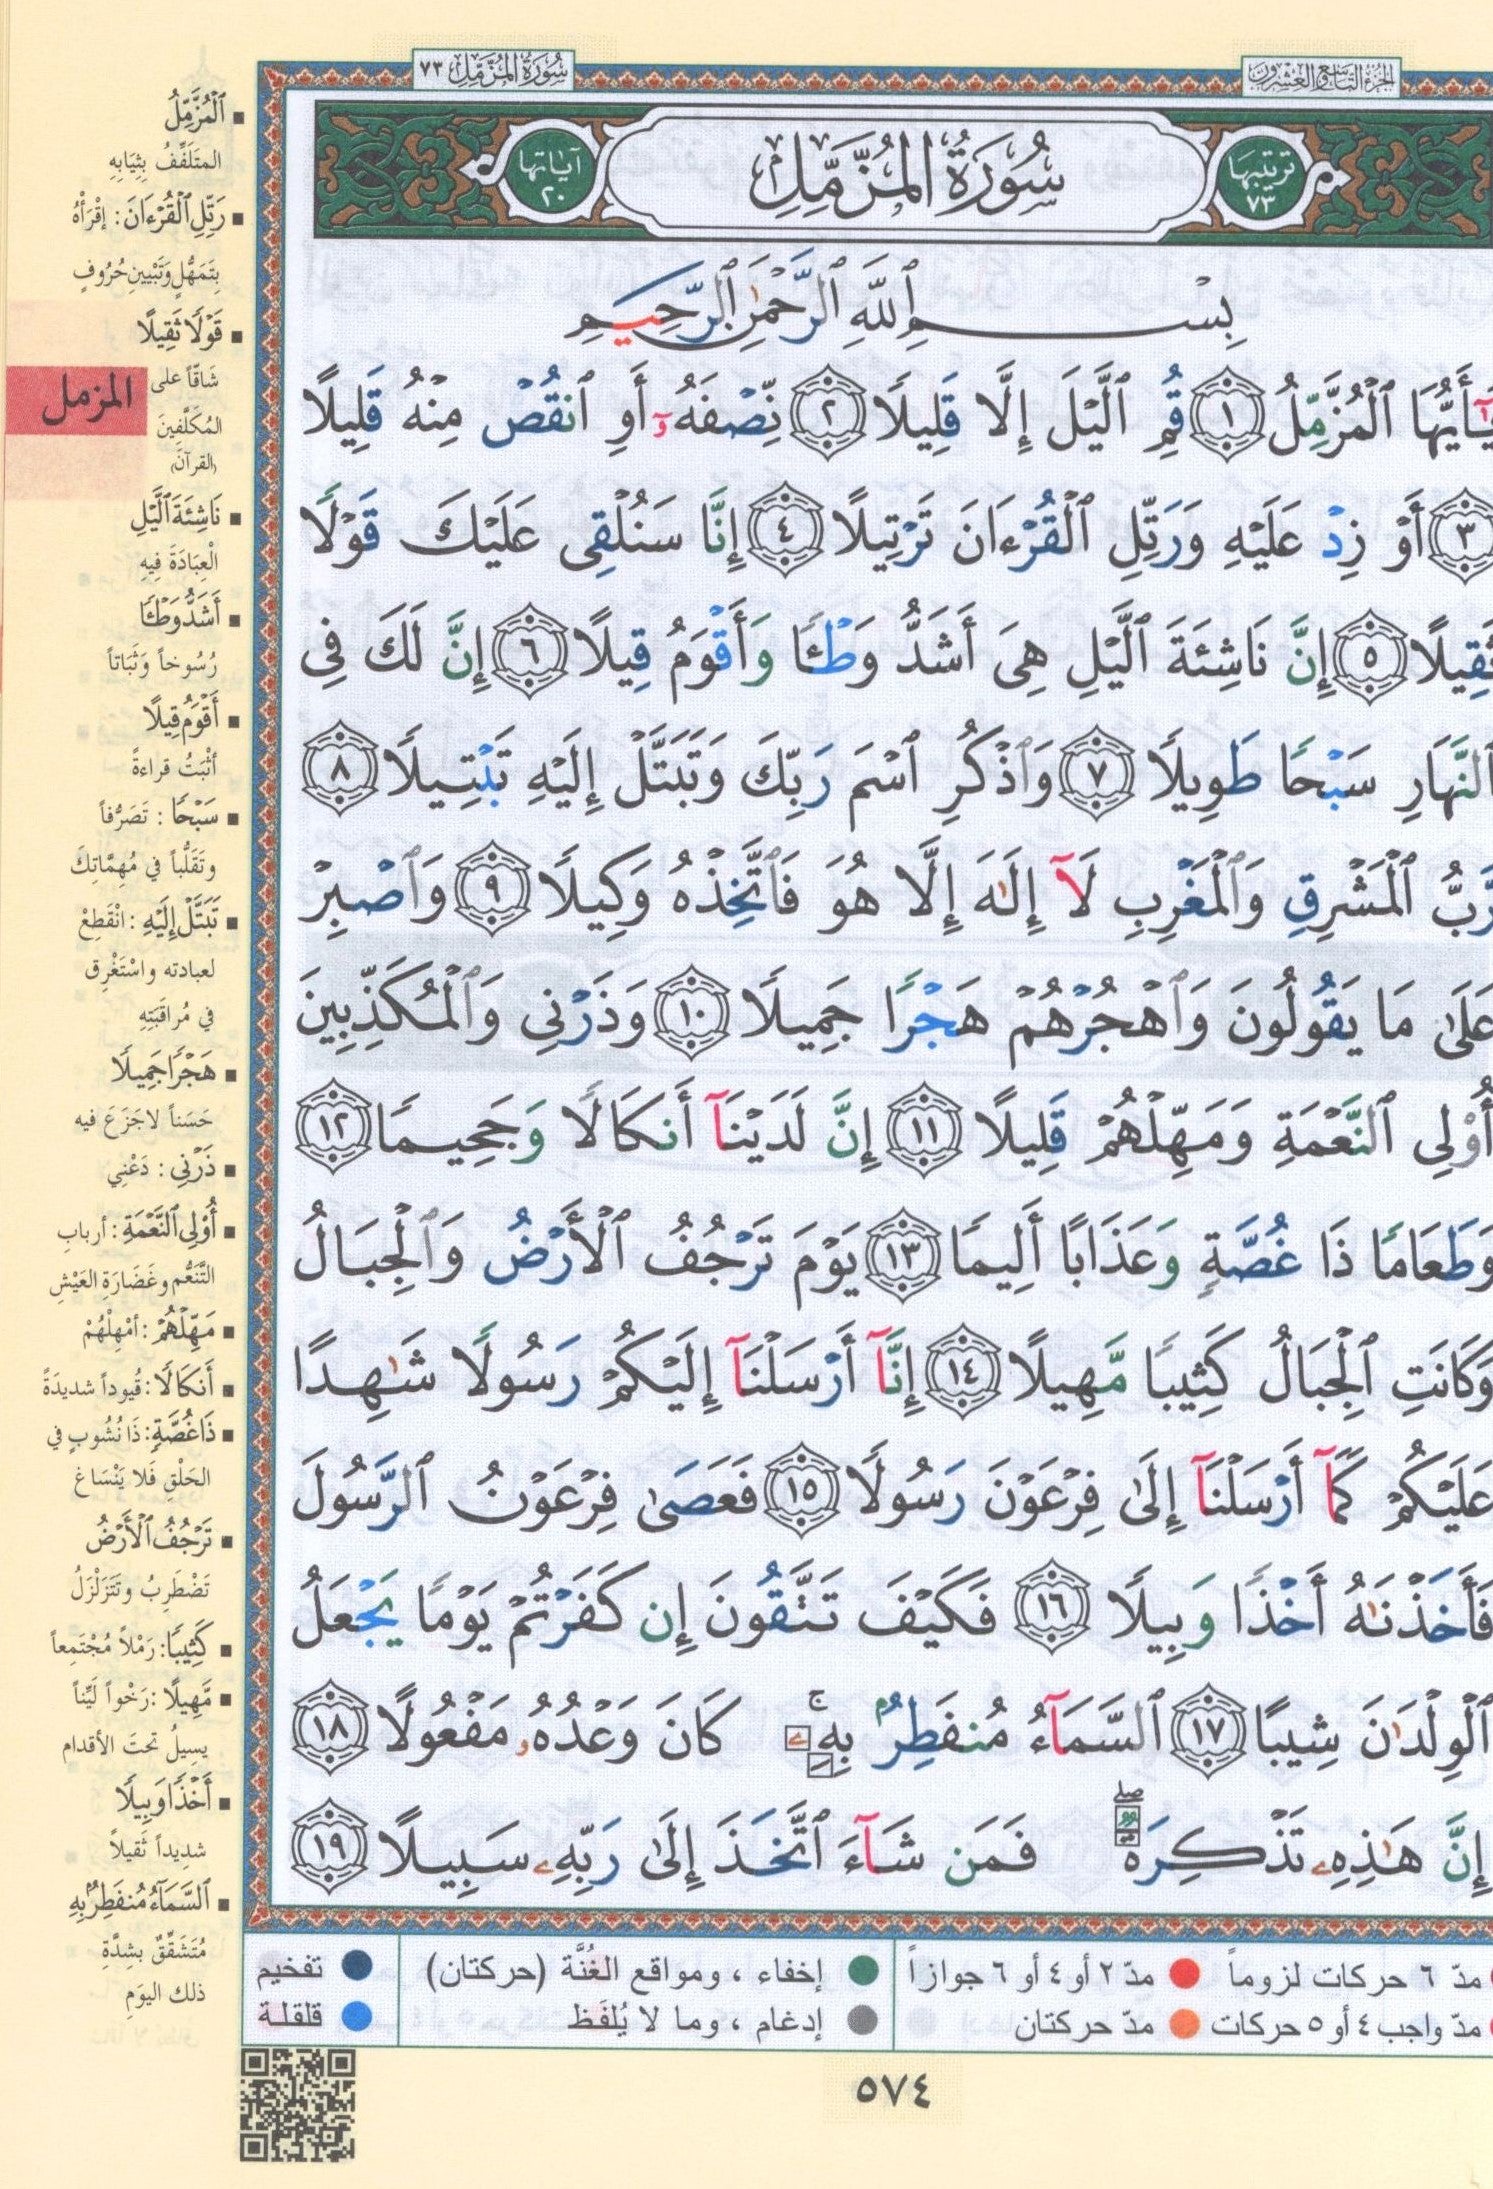 الجزء التاسع والعشرون
سُورَةُ المُزَّمِّل ٧٣
ترتيبها ٧٣
سُورَةُ المُزَّمِّلِ
آياتها ٢٠
بِسْمِ ٱللَّهِ ٱلرَّحْمَٰنِ ٱلرَّحِيمِ
يَٰٓأَيُّهَا ٱلْمُزَّمِّلُ ١ قُمِ ٱلَّيْلَ إِلَّا قَلِيلًا ٢ نِّصْفَهُۥٓ أَوِ ٱنقُصْ مِنْهُ قَلِيلًا
٣ أَوْ زِدْ عَلَيْهِ وَرَتِّلِ ٱلْقُرْءَانَ تَرْتِيلًا ٤ إِنَّا سَنُلْقِى عَلَيْكَ قَوْلًا
ثَقِيلًا ٥ إِنَّ نَاشِئَةَ ٱلَّيْلِ هِىَ أَشَدُّ وَطْـًٔا وَأَقْوَمُ قِيلًا ٦ إِنَّ لَكَ فِى
ٱلنَّهَارِ سَبْحًا طَوِيلًا ٧ وَٱذْكُرِ ٱسْمَ رَبِّكَ وَتَبَتَّلْ إِلَيْهِ تَبْتِيلًا ٨
رَّبُّ ٱلْمَشْرِقِ وَٱلْمَغْرِبِ لَآ إِلَٰهَ إِلَّا هُوَ فَٱتَّخِذْهُ وَكِيلًا ٩ وَٱصْبِرْ
عَلَىٰ مَا يَقُولُونَ وَٱهْجُرْهُمْ هَجْرًا جَمِيلًا ١٠ وَذَرْنِى وَٱلْمُكَذِّبِينَ
أُو۟لِى ٱلنَّعْمَةِ وَمَهِّلْهُمْ قَلِيلًا ١١ إِنَّ لَدَيْنَآ أَنكَالًا وَجَحِيمًا ١٢
وَطَعَامًا ذَا غُصَّةٍ وَعَذَابًا أَلِيمًا ١٣ يَوْمَ تَرْجُفُ ٱلْأَرْضُ وَٱلْجِبَالُ
وَكَانَتِ ٱلْجِبَالُ كَثِيبًا مَّهِيلًا ١٤ إِنَّآ أَرْسَلْنَآ إِلَيْكُمْ رَسُولًا شَٰهِدًا
عَلَيْكُمْ كَمَآ أَرْسَلْنَآ إِلَىٰ فِرْعَوْنَ رَسُولًا ١٥ فَعَصَىٰ فِرْعَوْنُ ٱلرَّسُولَ
فَأَخَذْنَٰهُ أَخْذًا وَبِيلًا ١٦ فَكَيْفَ تَتَّقُونَ إِن كَفَرْتُمْ يَوْمًا يَجْعَلُ
ٱلْوِلْدَٰنَ شِيبًا ١٧ ٱلسَّمَآءُ مُنفَطِرٌۢ بِهِۦ ۚ كَانَ وَعْدُهُۥ مَفْعُولًا ١٨
إِنَّ هَٰذِهِۦ تَذْكِرَةٌ ۖ فَمَن شَآءَ ٱتَّخَذَ إِلَىٰ رَبِّهِۦ سَبِيلًا ١٩
ٱلْمُزَّمِّلُ
المتَلَفِّفُ بِثِيَابِهِ
رَتِّلِ ٱلْقُرْءَانَ: اقْرَأْهُ
بِتَمَهُّلٍ وَتَبْيِينِ حُرُوفٍ
قَوْلًا ثَقِيلًا
شَاقّاً على
المُكَلَّفِينَ
(القرآن)
المزمل
نَاشِئَةَ ٱلَّيْلِ
الْعِبَادَةَ فِيهِ
أَشَدُّ وَطْـًٔا
رُسُوخاً وَثَبَاتاً
أَقْوَمُ قِيلًا
أَثْبَتُ قراءةً
سَبْحًا: تَصَرُّفاً
وتَقَلُّباً في مُهِمَّاتِكَ
تَبَتَّلْ إِلَيْهِ: انْقَطِعْ
لعبادته واسْتَغْرِق
في مُراقَبَتِهِ
هَجْرًا جَمِيلًا
حَسَناً لاجَزَعَ فيه
ذَرْنِي: دَعْنِي
أُو۟لِى ٱلنَّعْمَةِ: أرباب
التَّنَعُّم وغَضَارَةِ العَيْشِ
مَهِّلْهُمْ: أمْهِلْهُمْ
أَنكَالًا: قُيوداً شديدَةً
ذَا غُصَّةٍ: ذَا نُشُوبٍ في
الحَلْقِ فَلا يَنْسَاغ
تَرْجُفُ ٱلْأَرْضُ
تَضْطَرِبُ وتَتَزَلْزَلُ
كَثِيبًا: رَمْلاً مُجْتَمِعاً
مَّهِيلًا: رَخْواً لَيِّناً
يسِيلُ تحتَ الأقدام
أَخْذًا وَبِيلًا
شدِيداً ثَقيلاً
ٱلسَّمَآءُ مُنفَطِرٌۢ بِهِ
مُتَشَقِّقٌ بشِدَّةِ
ذلك اليَومِ
مدّ ٦ حركات لزوماً مدّ ٢ أو ٤ أو ٦ جوازاً إخفاء ، ومواقع الغُنَّة (حركتان) تفخيم
مدّ واجب ٤ أو ٥ حركات مدّ حركتان إدغام ، وما لا يُلفَظ قلقلة
٥٧٤